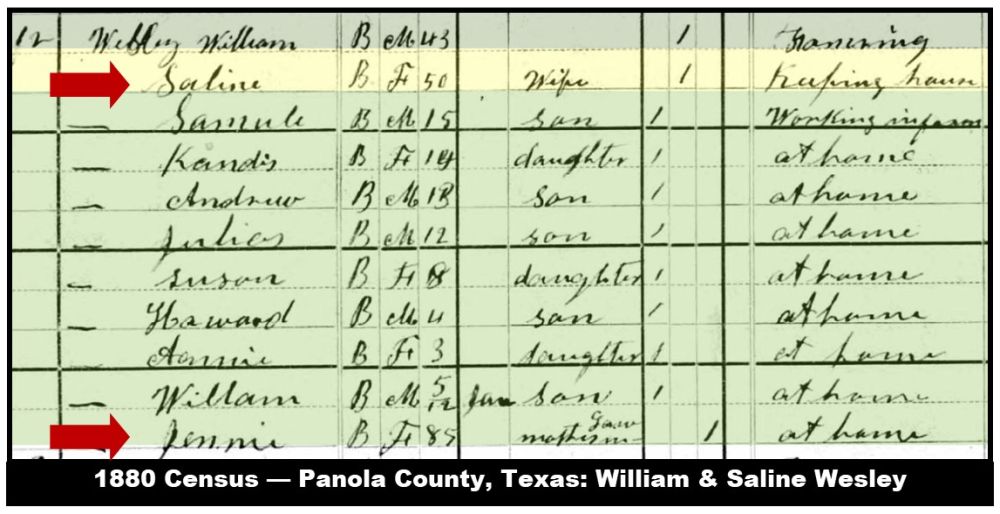 12 Webley William B M 43 1 Farmering
Saline B F 50 Wife 1 Keeping house
— Samule B M 15 son 1 Working in farm
— Kandis B F 14 daughter 1 at home
— Andrew B M 13 son 1 at home
— Julias B M 12 son 1 at home
— Suson B F 8 daughter 1 at home
— Haward B M 4 son 1 at home
— Annie B F 3 daughter 1 at home
— William B M 5/12 Jan son 1 at home
Jennie B F 85 mother in Law 1 at home
1880 Census — Panola County, Texas: William & Saline Wesley